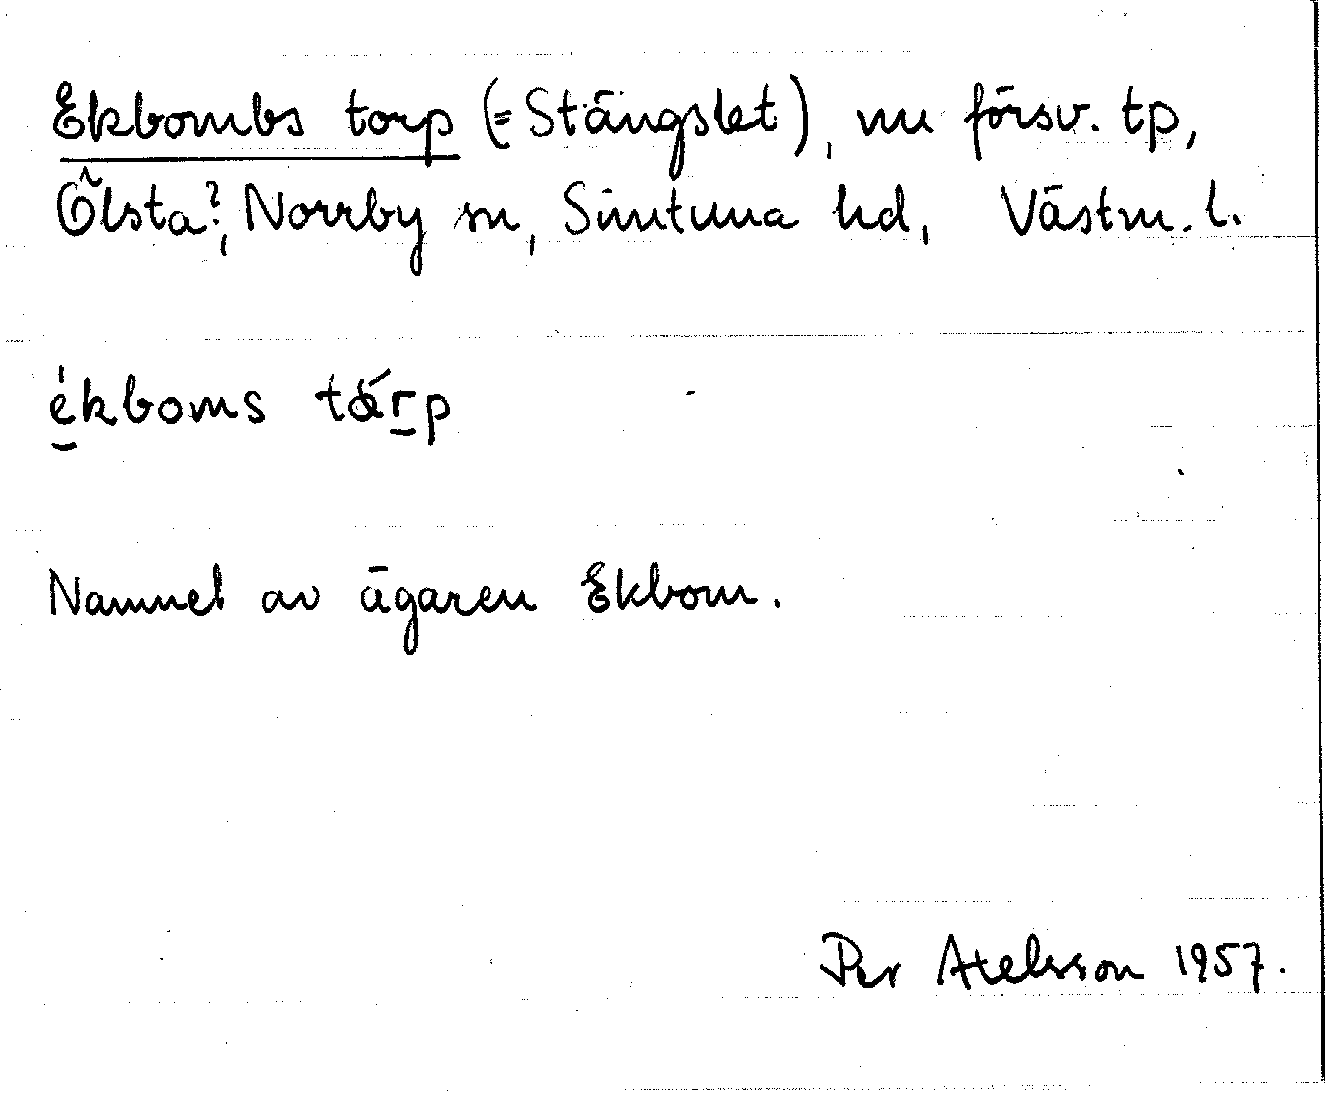 Ekbombs torp (=Stängslet), nu försv. tp,
Ölsta?, Norrby sn, Simtuna hd, Västm. l.
ékboms tǻrp
Namnet av ägaren Ekbom.
Per Axelsson 1957.